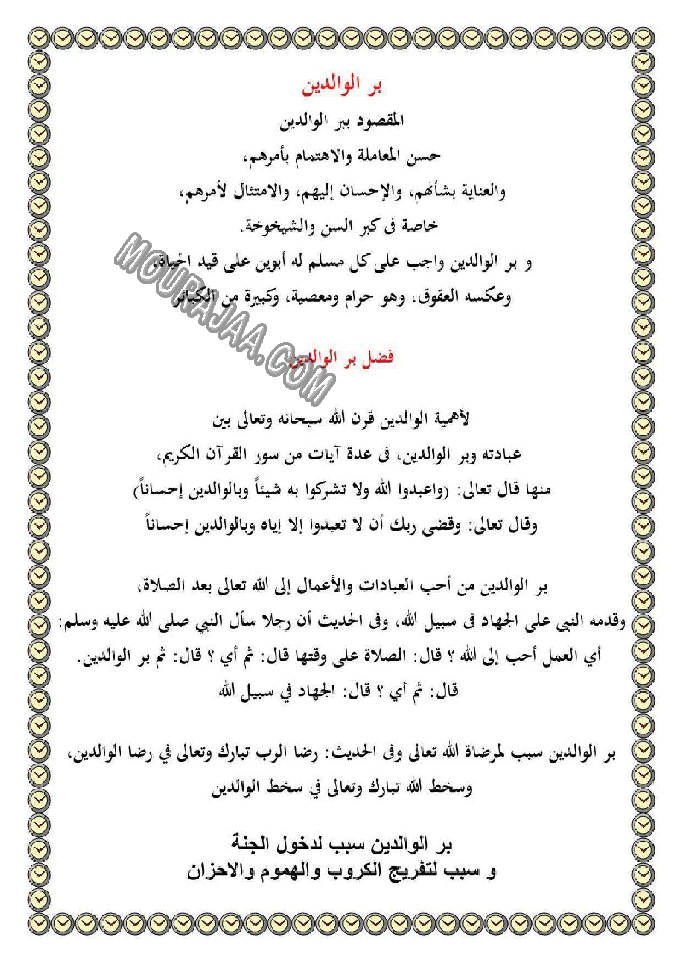 بر الوالدين
المقصود ببر الوالدين
حسن المعاملة والاهتمام بأمرهم،
والعناية بشأنهم، والإحسان إليهم، والامتثال لأمرهم،
خاصة فى كبر السن والشيخوخة.
و بر الوالدين واجب على كل مسلم له أبوين على قيد الحياة،
وعكسه العقوق، وهو حرام ومعصية، وكبيرة من الكبائر
MOURAJAA.COM
فضل بر الوالدين
لأهمية الوالدين قرن الله سبحانه وتعالى بين
عبادته وبر الوالدين، فى عدة آيات من سور القرآن الكريم،
منها قال تعالى: (واعبدوا الله ولا تشركوا به شيئاً وبالوالدين إحساناً)
وقال تعالى: وقضى ربك أن لا تعبدوا إلا إياه وبالوالدين إحساناً
بر الوالدين من أحب العبادات والأعمال إلى الله تعالى بعد الصلاة،
وقدمه النبى على الجهاد فى سبيل الله، وفى الحديث أن رجلا سأل النبي صلى الله عليه وسلم:
أي العمل أحب إلى الله ؟ قال: الصلاة على وقتها قال: ثم أي ؟ قال: ثم بر الوالدين.
قال: ثم أي ؟ قال: الجهاد في سبيل الله
بر الوالدين سبب لمرضاة الله تعالى وفى الحديث: رضا الرب تبارك وتعالى في رضا الوالدين،
وسخط الله تبارك وتعالى في سخط الوالدين
بر الوالدين سبب لدخول الجنة
و سبب لتفريج الكروب والهموم والاحزان